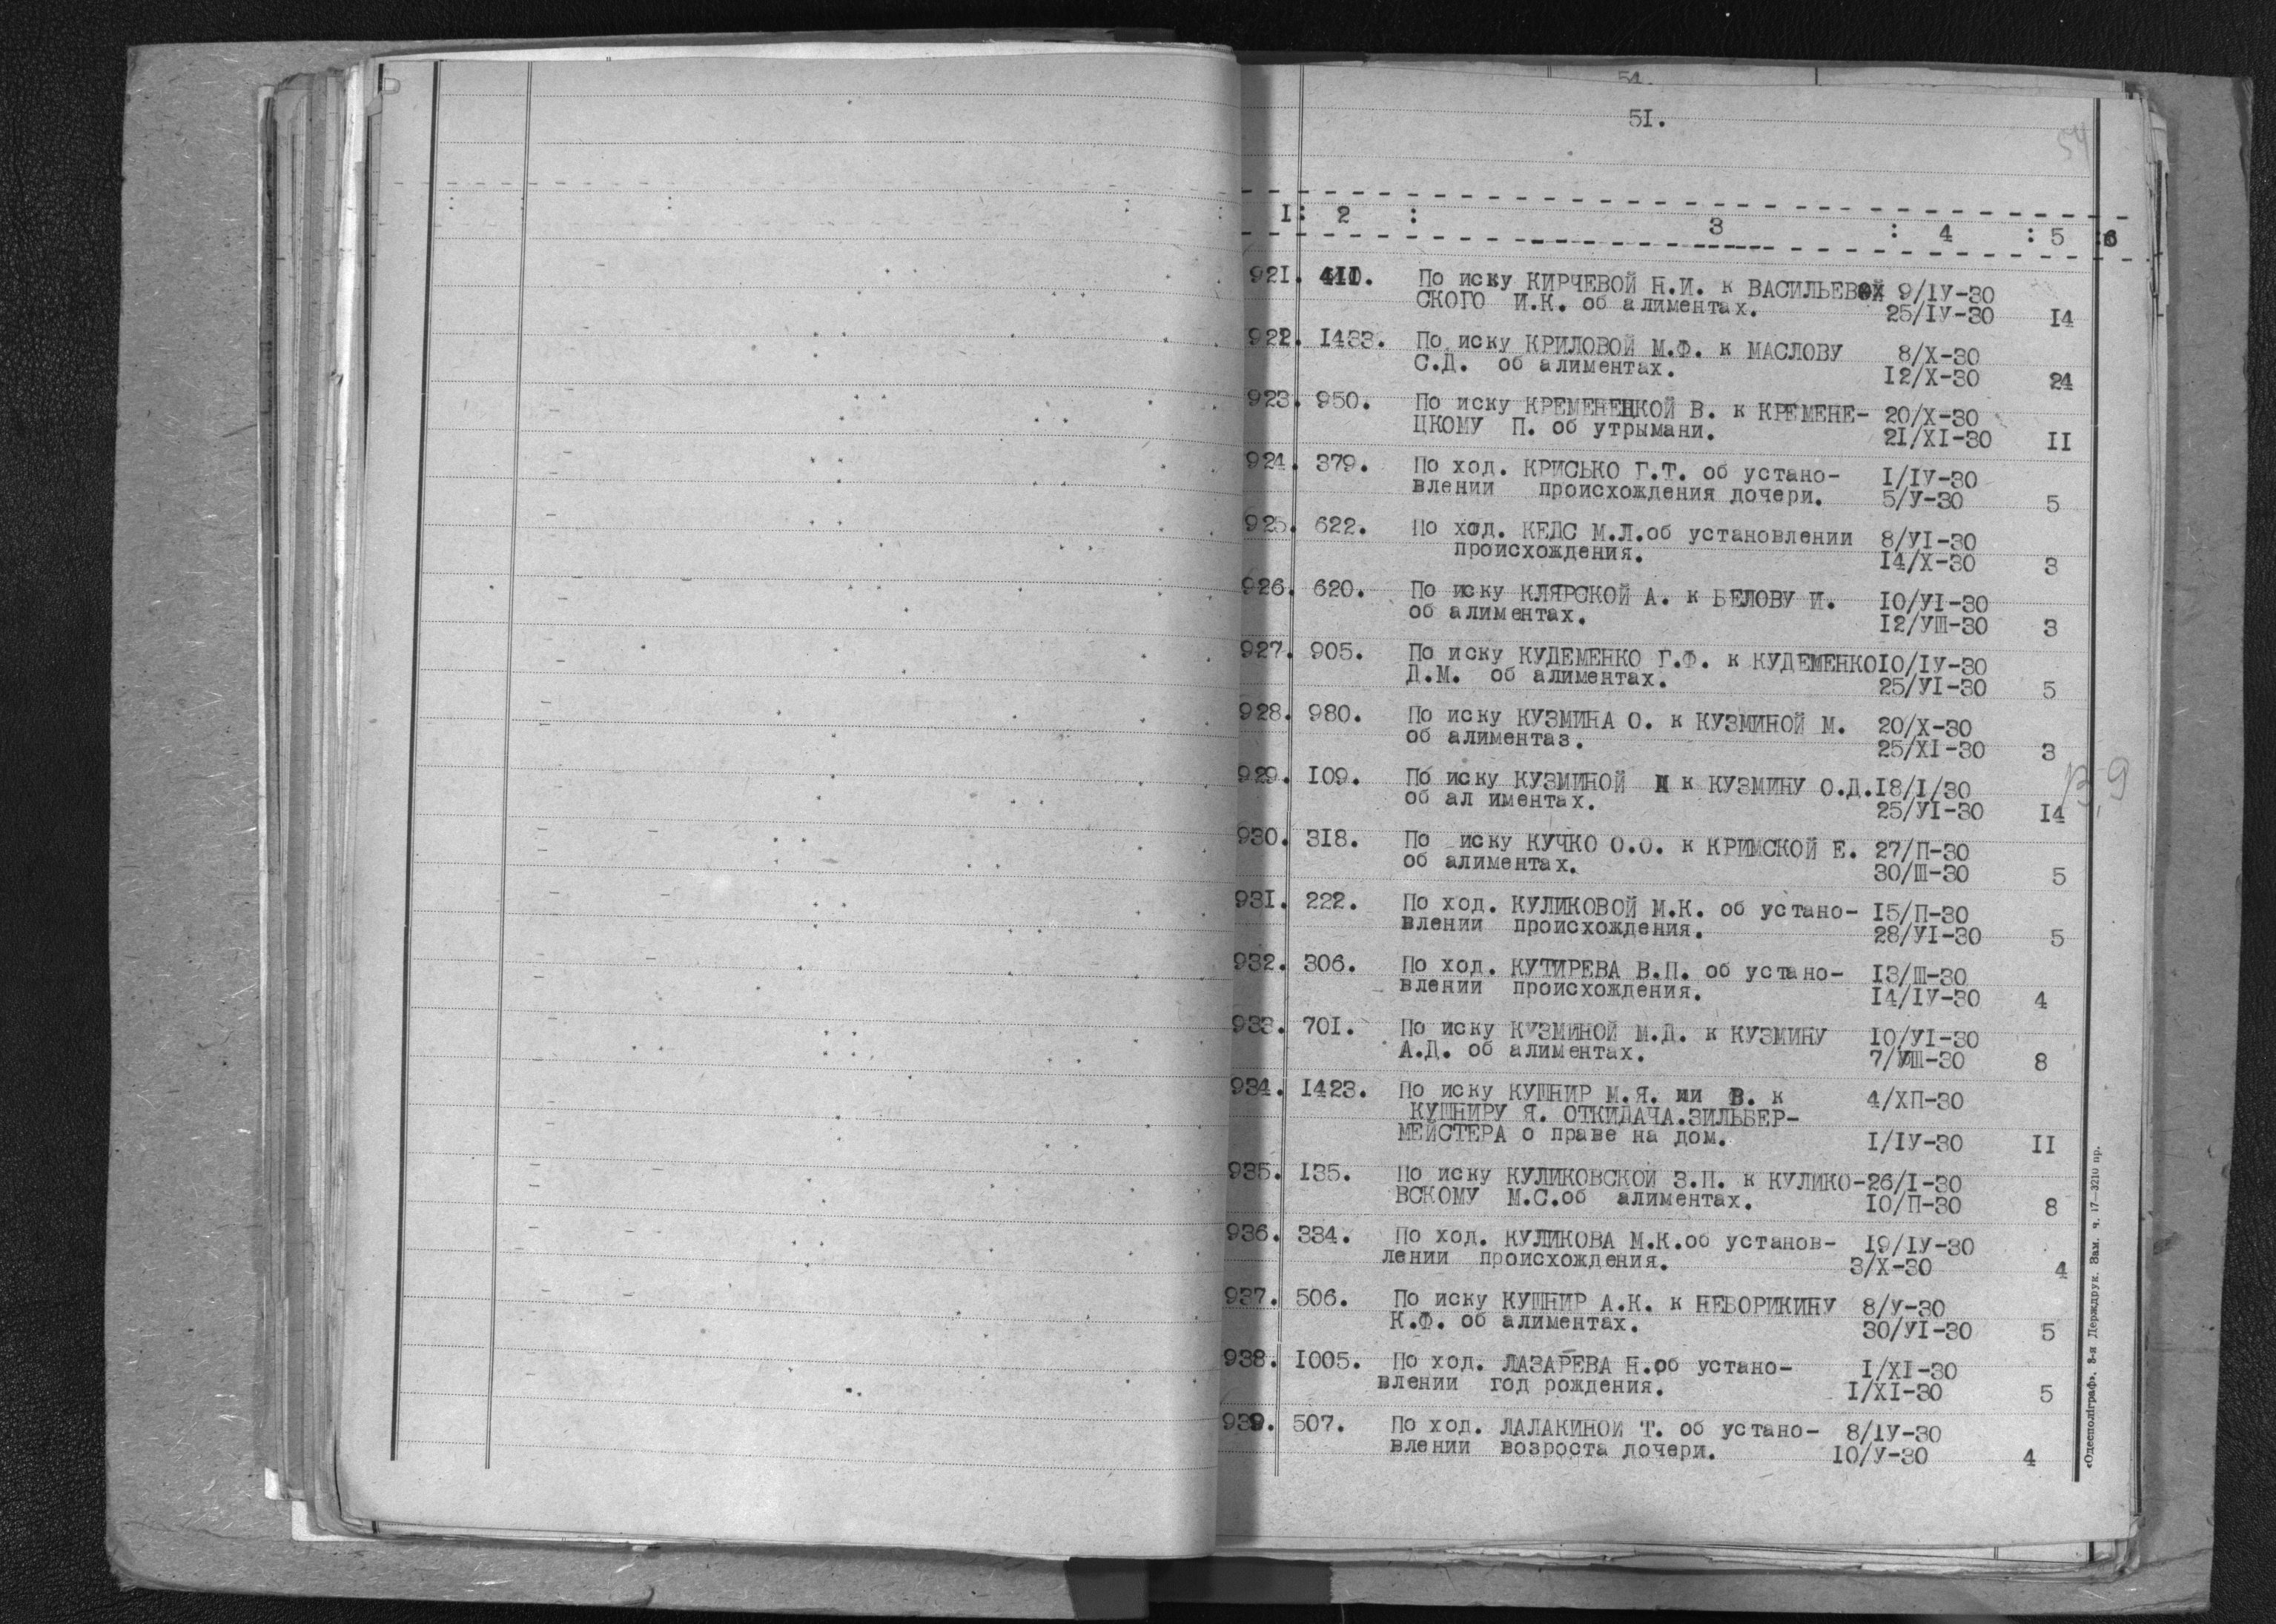 51.
54
1: 2 : 3 : 4 : 5 :6
921. 411. По иску КИРЧЕВОЙ Н.И. к ВАСИЛЬЕВ 9/IУ-30
СКОГО И.К. об алиментах. 25/IУ-30 14
922. 1433. По иску КРИЛОВОЙ М.Ф. к МАСЛОВУ 8/Х-30
С.Д. об алиментах. 12/Х-30 24
923. 950. По иску КРЕМЕНЕЦКОЙ В. к КРЕМЕНЕ- 20/Х-30
ЦКОМУ П. об утрымани. 21/ХI-30 11
924. 379. По ход. КРИСЬКО Г.Т. об устано- 1/IУ-30
влении происхождения дочери. 5/У-30 5
925. 622. По ход. КЕДС М.Л.об установлении 8/УI-30
происхождения. 14/Х-30 3
926. 620. По иску КЛЯРСКОЙ А. к БЕЛОВУ И. 10/УI-30
об алиментах. 12/УШ-30 3
927. 905. По иску КУДЕМЕНКО Г.Ф. к КУДЕМЕНКО10/IУ-30
Д.М. об алиментах. 25/УI-30 5
928. 980. По иску КУЗМИНА О. к КУЗМИНОЙ М. 20/Х-30
об алиментаз. 25/ХI-30 3
929. 109. По иску КУЗМИНОЙ М к КУЗМИНУ О.Д.18/I/30
об ал иментах. 25/УI-30 14
930. 318. По иску КУЧКО О.О. к КРИМСКОЙ Е. 27/П-30
об алиментах. 30/Ш-30 5
931. 222. По ход. КУЛИКОВОЙ М.К. об устано- 15/П-30
влении происхождения. 28/УI-30 5
932. 306. По ход. КУТИРЕВА В.П. об устано- 13/Ш-30
влении происхождения. 14/IУ-30 4
933. 701. По иску КУЗМИНОЙ М.Д. к КУЗМИНУ 10/УI-30
А.Д. об алиментах. 7/УШ-30 8
934. 1423. По иску КУШНИР М.Я. ми В. к 4/ХП-30
КУШНИРУ Я. ОТКИДАЧА.ЗИЛЬБЕР-
МЕЙСТЕРА о праве на дом. 1/IУ-30 11
935. 135. По иску КУЛИКОВСКОЙ З.П. к КУЛИКО-26/I-30
ВСКОМУ М.С.об алиментах. 10/П-30 8
936. 334. По ход. КУЛИКОВА М.К.об установ- 19/IУ-30
лении происхождения. 3/Х-30 4
937. 506. По иску КУШНИР А.К. к НЕВОРИКИНУ 8/У-30
К.Ф. об алиментах. 30/УI-30 5
938. 1005. По ход. ЛАЗАРЕВА Н.об устано- 1/ХI-30
влении год рождения. 1/ХI-30 5
939. 507. По ход. ЛАЛАКИНОЙ Т. об устано- 8/1У-30
влении возроста дочери. 10/У-30 4
«Одесполіграф». 3-я Держдрук. Зам. ч. 17—3210 пр.